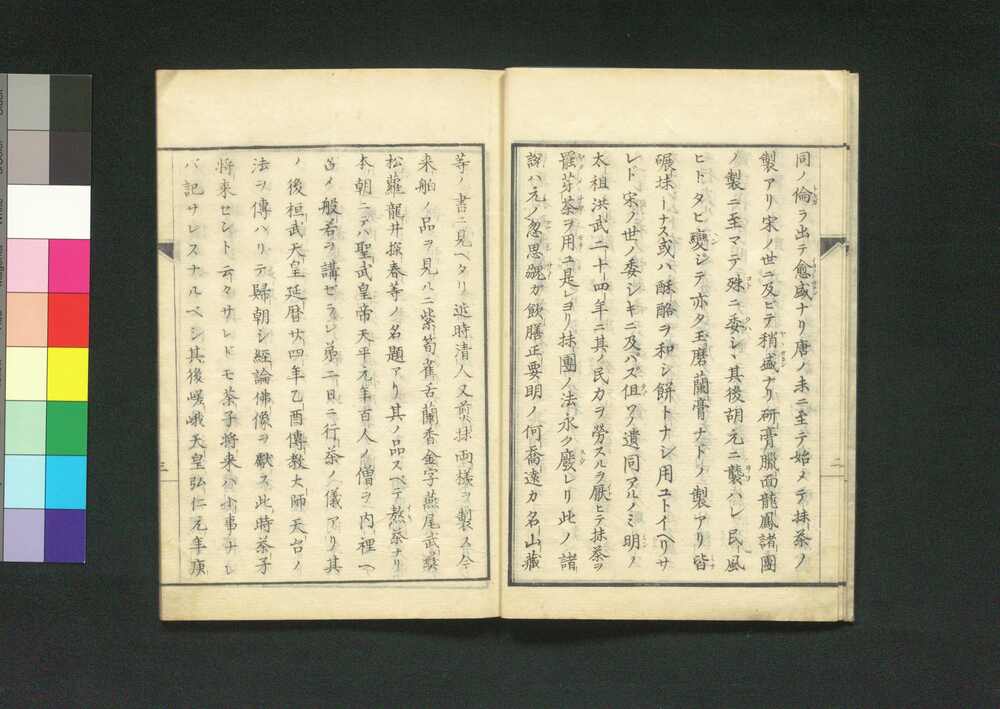 同ノ倫ヲ出テ愈盛ナリ唐ノ末ニ至テ始メテ抹茶ノ
製アリ宋ノ世ニ及ヒテ稍盛ナリ研膏臘面龍鳳諸團
ノ製ニ至マテ殊ニ委シ其後胡元ニ襲ハレ民風
ヒトタヒ變ジテ亦タ玉磨蘭膏ナドノ製アリ皆
碾抹ーナス或ハ酥酪ヲ和シ餅トナシ用ユトイヘリサ
レド宋ノ世ノ委シキニ及バズ但ソノ遺同アルノミ明ノ
太祖洪武二十四年ニ其ノ民力ヲ勞スルヲ厭ヒテ抹茶ヲ
罷メ芽茶ヲ用ユ是レヨリ抹團ノ法永ク廢レリ此ノ諸
說ハ元ノ忽思慧カ飲膳正要明ノ何喬遠カ名山藏
二
等ノ書ニ見ヘタリ近時清人又煎抹両樣ヲ製ス今
来舶ノ品ヲ見ルニ紫筍雀舌蘭香金字燕尾武夷
松蘿龍井探春等ノ名題アリ其ノ品スベテ熬茶ナリ
本朝ニテハ聖武皇帝天平元年百人ノ僧ヲ内裡ヘ
召メ般若ヲ講ゼラレ第二日ニ行茶ノ儀アリ其
ノ後桓武天皇延暦廿四年乙酉傳教大師天台ノ
法ヲ傳ハリテ歸朝シ經論佛像ヲ獻ス此時茶子
将来セント云々サレドモ茶子将来ハ小事ナレ
バ記サレスナルベシ其後嵯峨天皇弘仁元年庚
三